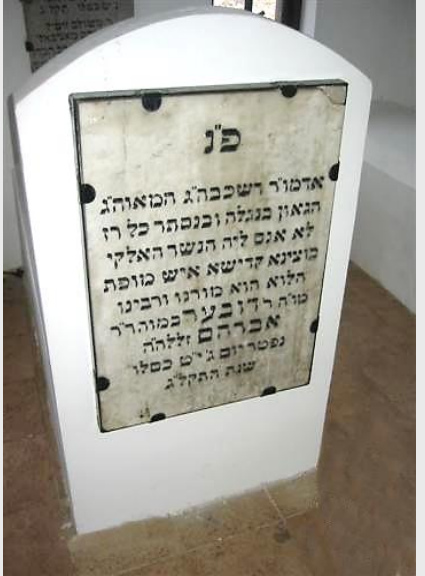 פ"נ
אדמו"ר רשכבה"ג המאוה"ג
הגאון בנגלה ובנסתר כל רז
לא אנס ליה הנשר האלקי
בוצינא קדישא איש מופת
הלוא הוא מורנו ורבינו
מו"ה ר' דובער במוהר"ר
אברהם זללה"ה
נפטר יום ג' י"ט כסלו
שנת התקל"ג